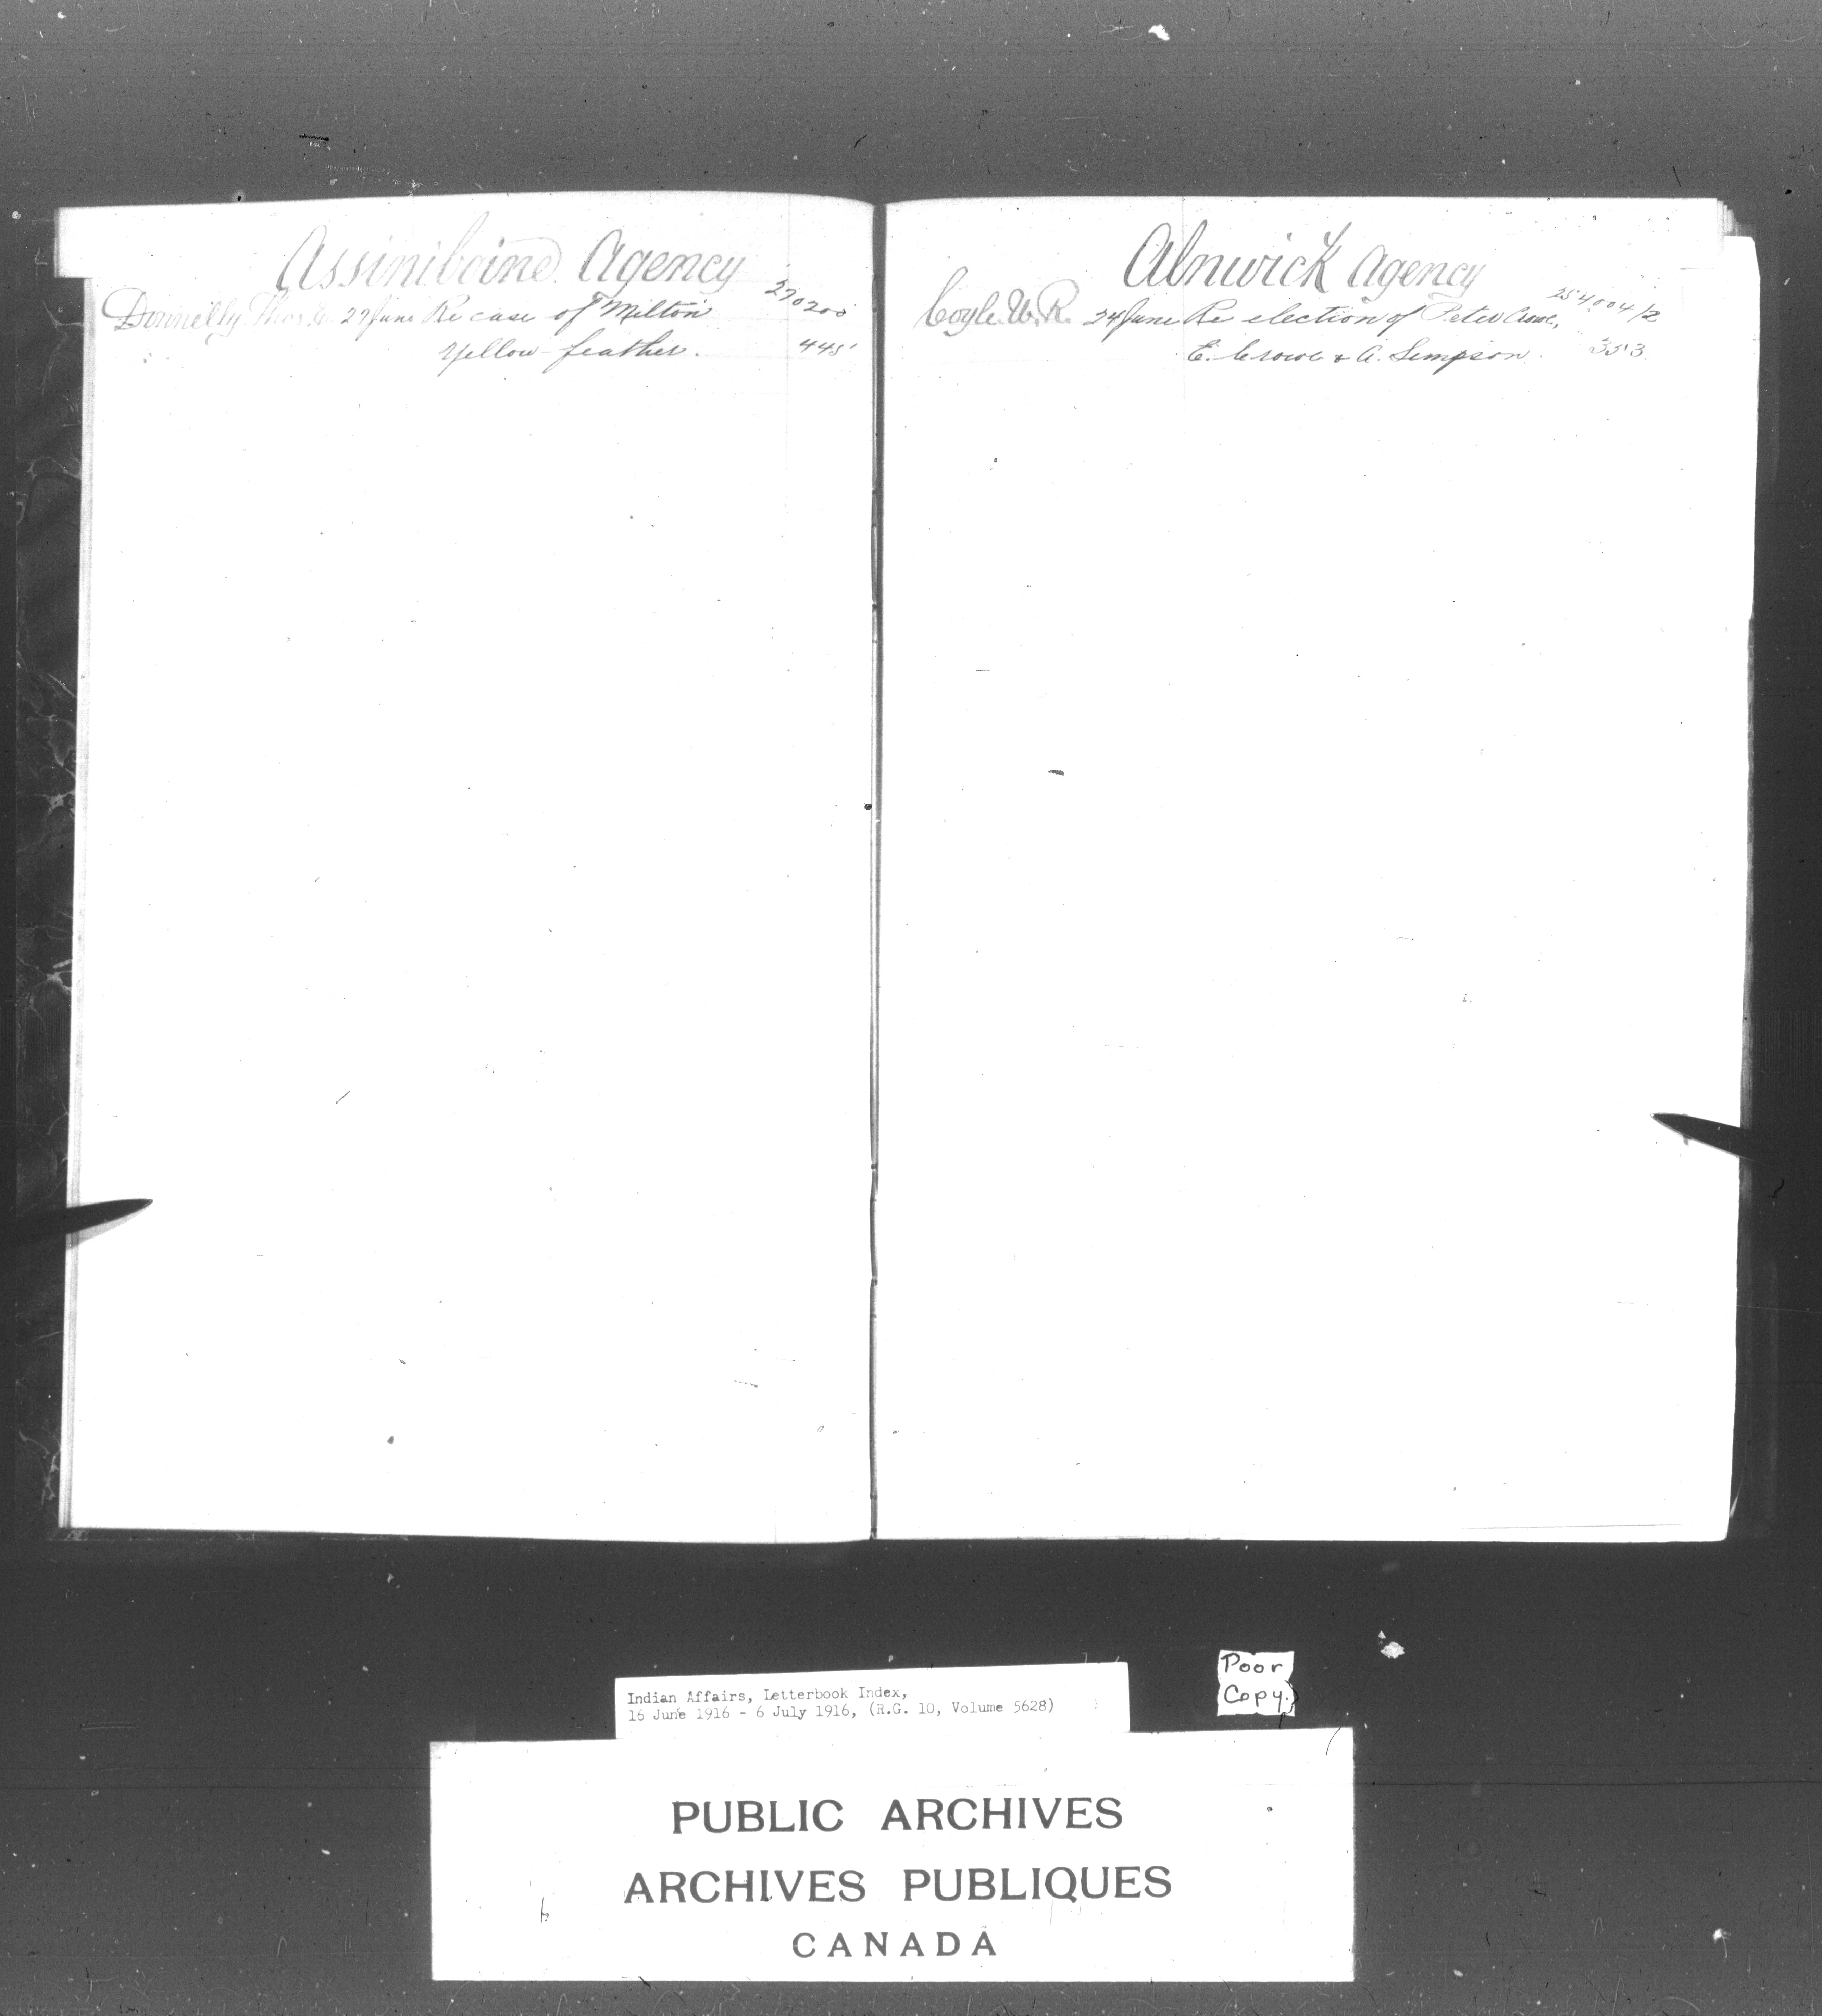 Assiniboine Agency
270200
Donnelly Thos. 27 June Re case of Milton
Yellow feather. 445
Alnwick Agency
254004/2
Coyle W.R. 24 June Re election of Peter Crowe,
E. Crowe & A. Simpson. 353
Poor
Copy.
Indian Affairs, Letterbook Index,
16 June 1916 - 6 July 1916, (R.G. 10, Volume 5628)
PUBLIC ARCHIVES
ARCHIVES PUBLIQUES
CANADA